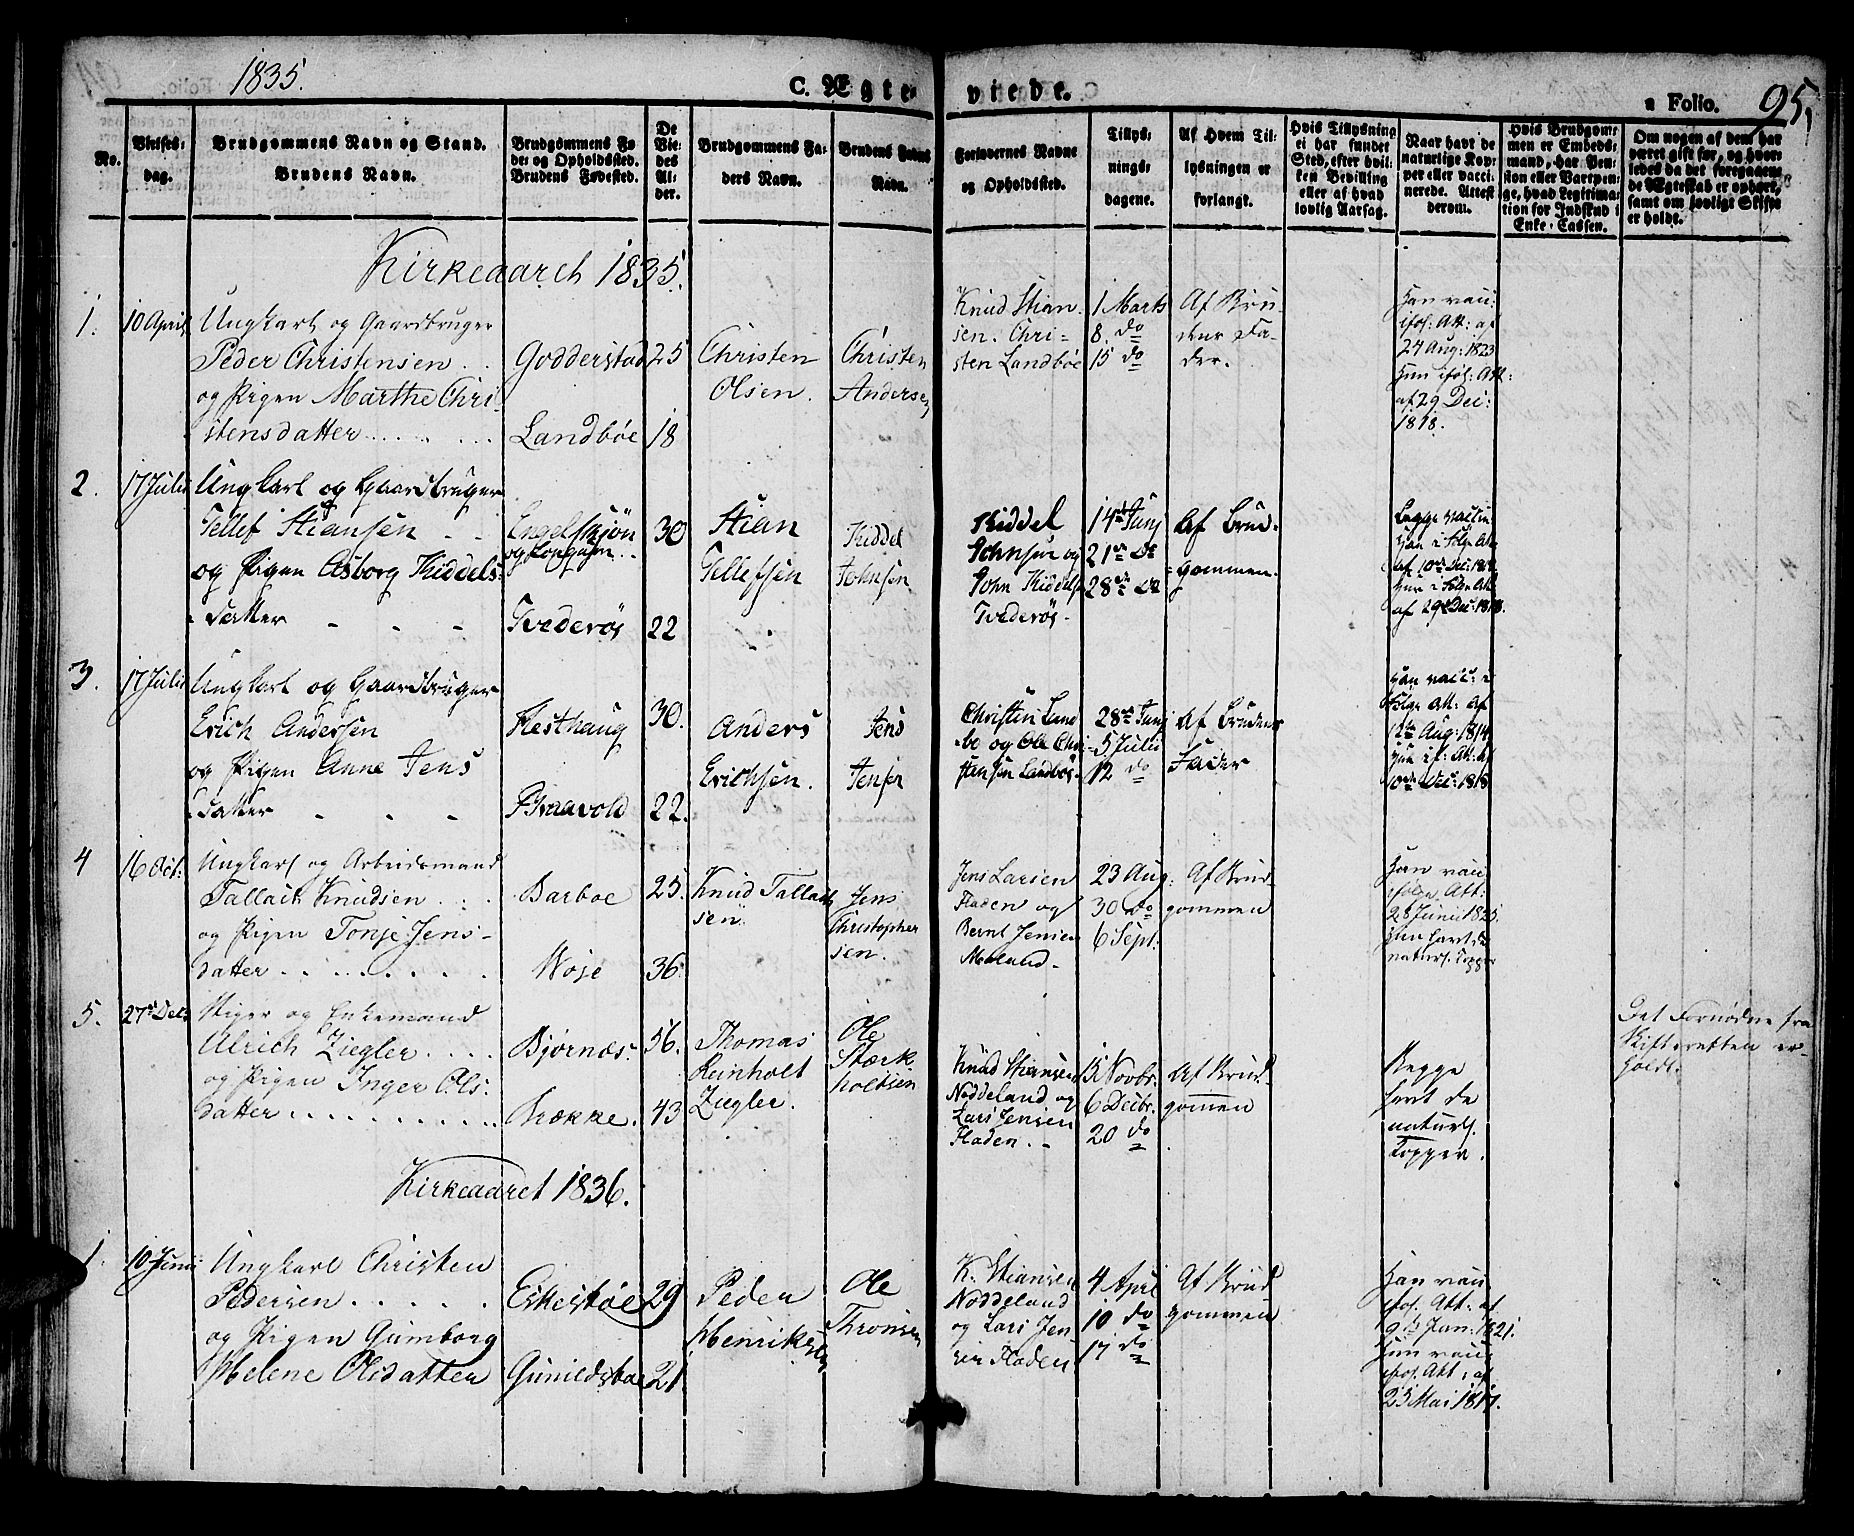 1835.
C. Ægte-
viede.
a Folio. 95.
No.
Vielses-
dag.
Brudgommens Navn og Stand.
Brudens Navn.
Brudgommens Fø
de: og Opholdssted.
Brudens Fødested.
De
Vie-
des
Al-
der.
Brudgommens Fa-
ders Navn.
Brudens Faders
Navn.
Forlovernes Navne
og Opholdssted.
Tillys-
nings-
dagene.
Af Hvem Til-
lysningen er
forlangt.
Hvis Tillysning
ei har fundet
Sted, efter hvil-
ken Bevilling
eller af hvad
lovlig Aarsag.
Naar havt de
naturlige Kop-
per eller vacci-
nerede. Attest
derom.
Hvis Brudgom-
men er Embeds-
mand, har Pen-
sion eller Vartpen-
ge, hvad Legitima-
tion for Indskud i
Enke-Cassen.
Om nogen af dem har
været gift før, og hvor-
ledes da det foregaaen-
de Ægteskab er ophørt,
samt om lovligt Skifte
er holdt.
Kirkeaaret 1835.
1.
10 April
Ungkarl og Gaardbruger
Peder Christensen . .
og Pigen Marthe Chri-
stensdatter . . . . . .
Godderstad
Landbøe
25
18
Christen
Olsen.
Christen
Andersen
Knud Stian-
sen. Chri-
sten Landbøe
1 Marts
8. do
15 do
Af Bru-
dens Fa-
der.
Han vacc.
iføl: Att: af
24 Aug: 1823
Hun iføl: Att:
af 29 Dec:
1818.
2.
17 Julii
Ungkarl og Gaardbruger
Tellef Stiansen - -
og Pigen Asborg Kiddels-
datter - - -
Engelskjøn
og
Tvederøs
30
22
Stian
Tellefsen
Kiddel
Johnsen
Kiddel
Johnsen og
John Kiddels
Tvederøs -
14de Junj
21de do
28de do
Af Brud-
gommen.
Begge vaccin
Han i Følge Att.
af 10de Dec:
Hun i Følge Att
af 29de Dec: 1818.
3.
17 Julii
Ungkarl og Gaardbruger
Erich Andersen
og Pigen Anne Jens
datter - - -
Hesthaug
Braavold
30.
22.
Anders
Erichsen.
Jens
Jensen
Christen Land
bo og Ole Chri-
stensen Landbøe.
28de Junj
5 Julii
12 do
Af Brudens
Fader
Han vacc: i
Følge Att. Af
12te Aug: 1814
Hun if: Att: Af
10de Dec: 1818
4
16 Oct:
Ungkarl og Arbeidsmand
Tallach Knudsen . . .
og Pigen Tonje Jens-
datter . . . . . . . .
Barboe
Woje
25.
36.
Knud Tallach
sen.
Jens
Christopher
sen.
Jens Larsen
Fladen og
Bernt Jensen
23 Aug:
30 do
6 Sept.
Af Brud-
gommen
Han vacc
ifølge Att:
28 Junii 1825.
Hun havt de
naturl. Kopper
5.
27de Dec:
Stiger og Enkemand
Ulrich Ziegler . . . .
og Pigen Inger Ols-
datter . . . . . . . . .
Bjørnæs.
Brække.
56.
43
Thomas
Reinholt
Ziegler.
Ole
Stærk-
holtsen
Knud Stiansen
Noddeland og
Lars Jensen
Fladen. -
15 Novbr.
6 Decbr.
20 do
Af Brud-
gommen
Begge
havt de
naturl.
Kopper.
Det Fornødne fra
Skifteretten er-
holdt.
Kirkeaaret 1836.
1.
10 Junii
Ungkarl Christen
Pedersen . . . . .
og Pigen Gumborg
Helene Olsdatter
Eskestøe
Gunildsboe
29
21
Peder
Henriksen
Ole
Thronsen
K. Stiansen
Noddeland
og Lars Jen-
sen Fladen
4 April
10 do
17 do
Af Brud
gommen
Han vacc
iføl. Att: af
9de Jan: 1821.
Hun vacc
iføl. Att: af
25 Mai 1817.